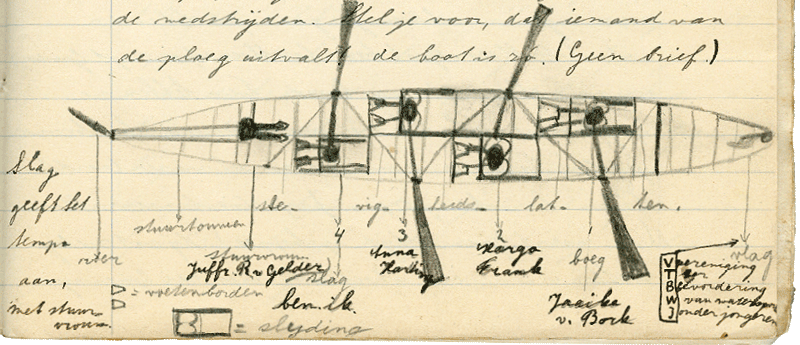 de wedstrijden. Stel je voor, dat iemand van
de ploeg uitvalt! de boot is zó. (Geen brief.)
Slag
geeft het
tempo
aan,
met stuur-
vrouw.
ste- vig- heids- lat- ten.
stuurtouwen
stuurvrouw
Juffr. R v Gelder
4
slag
ben ik.
3
Anna
Harting
2
Margo
Frank
1
boeg
Jaaike
v. Bork
vlag
V
T
B
W
J
Vereniging
ter
Bevordering
van watersport
onder jongeren
= voetenborden
B = slyding